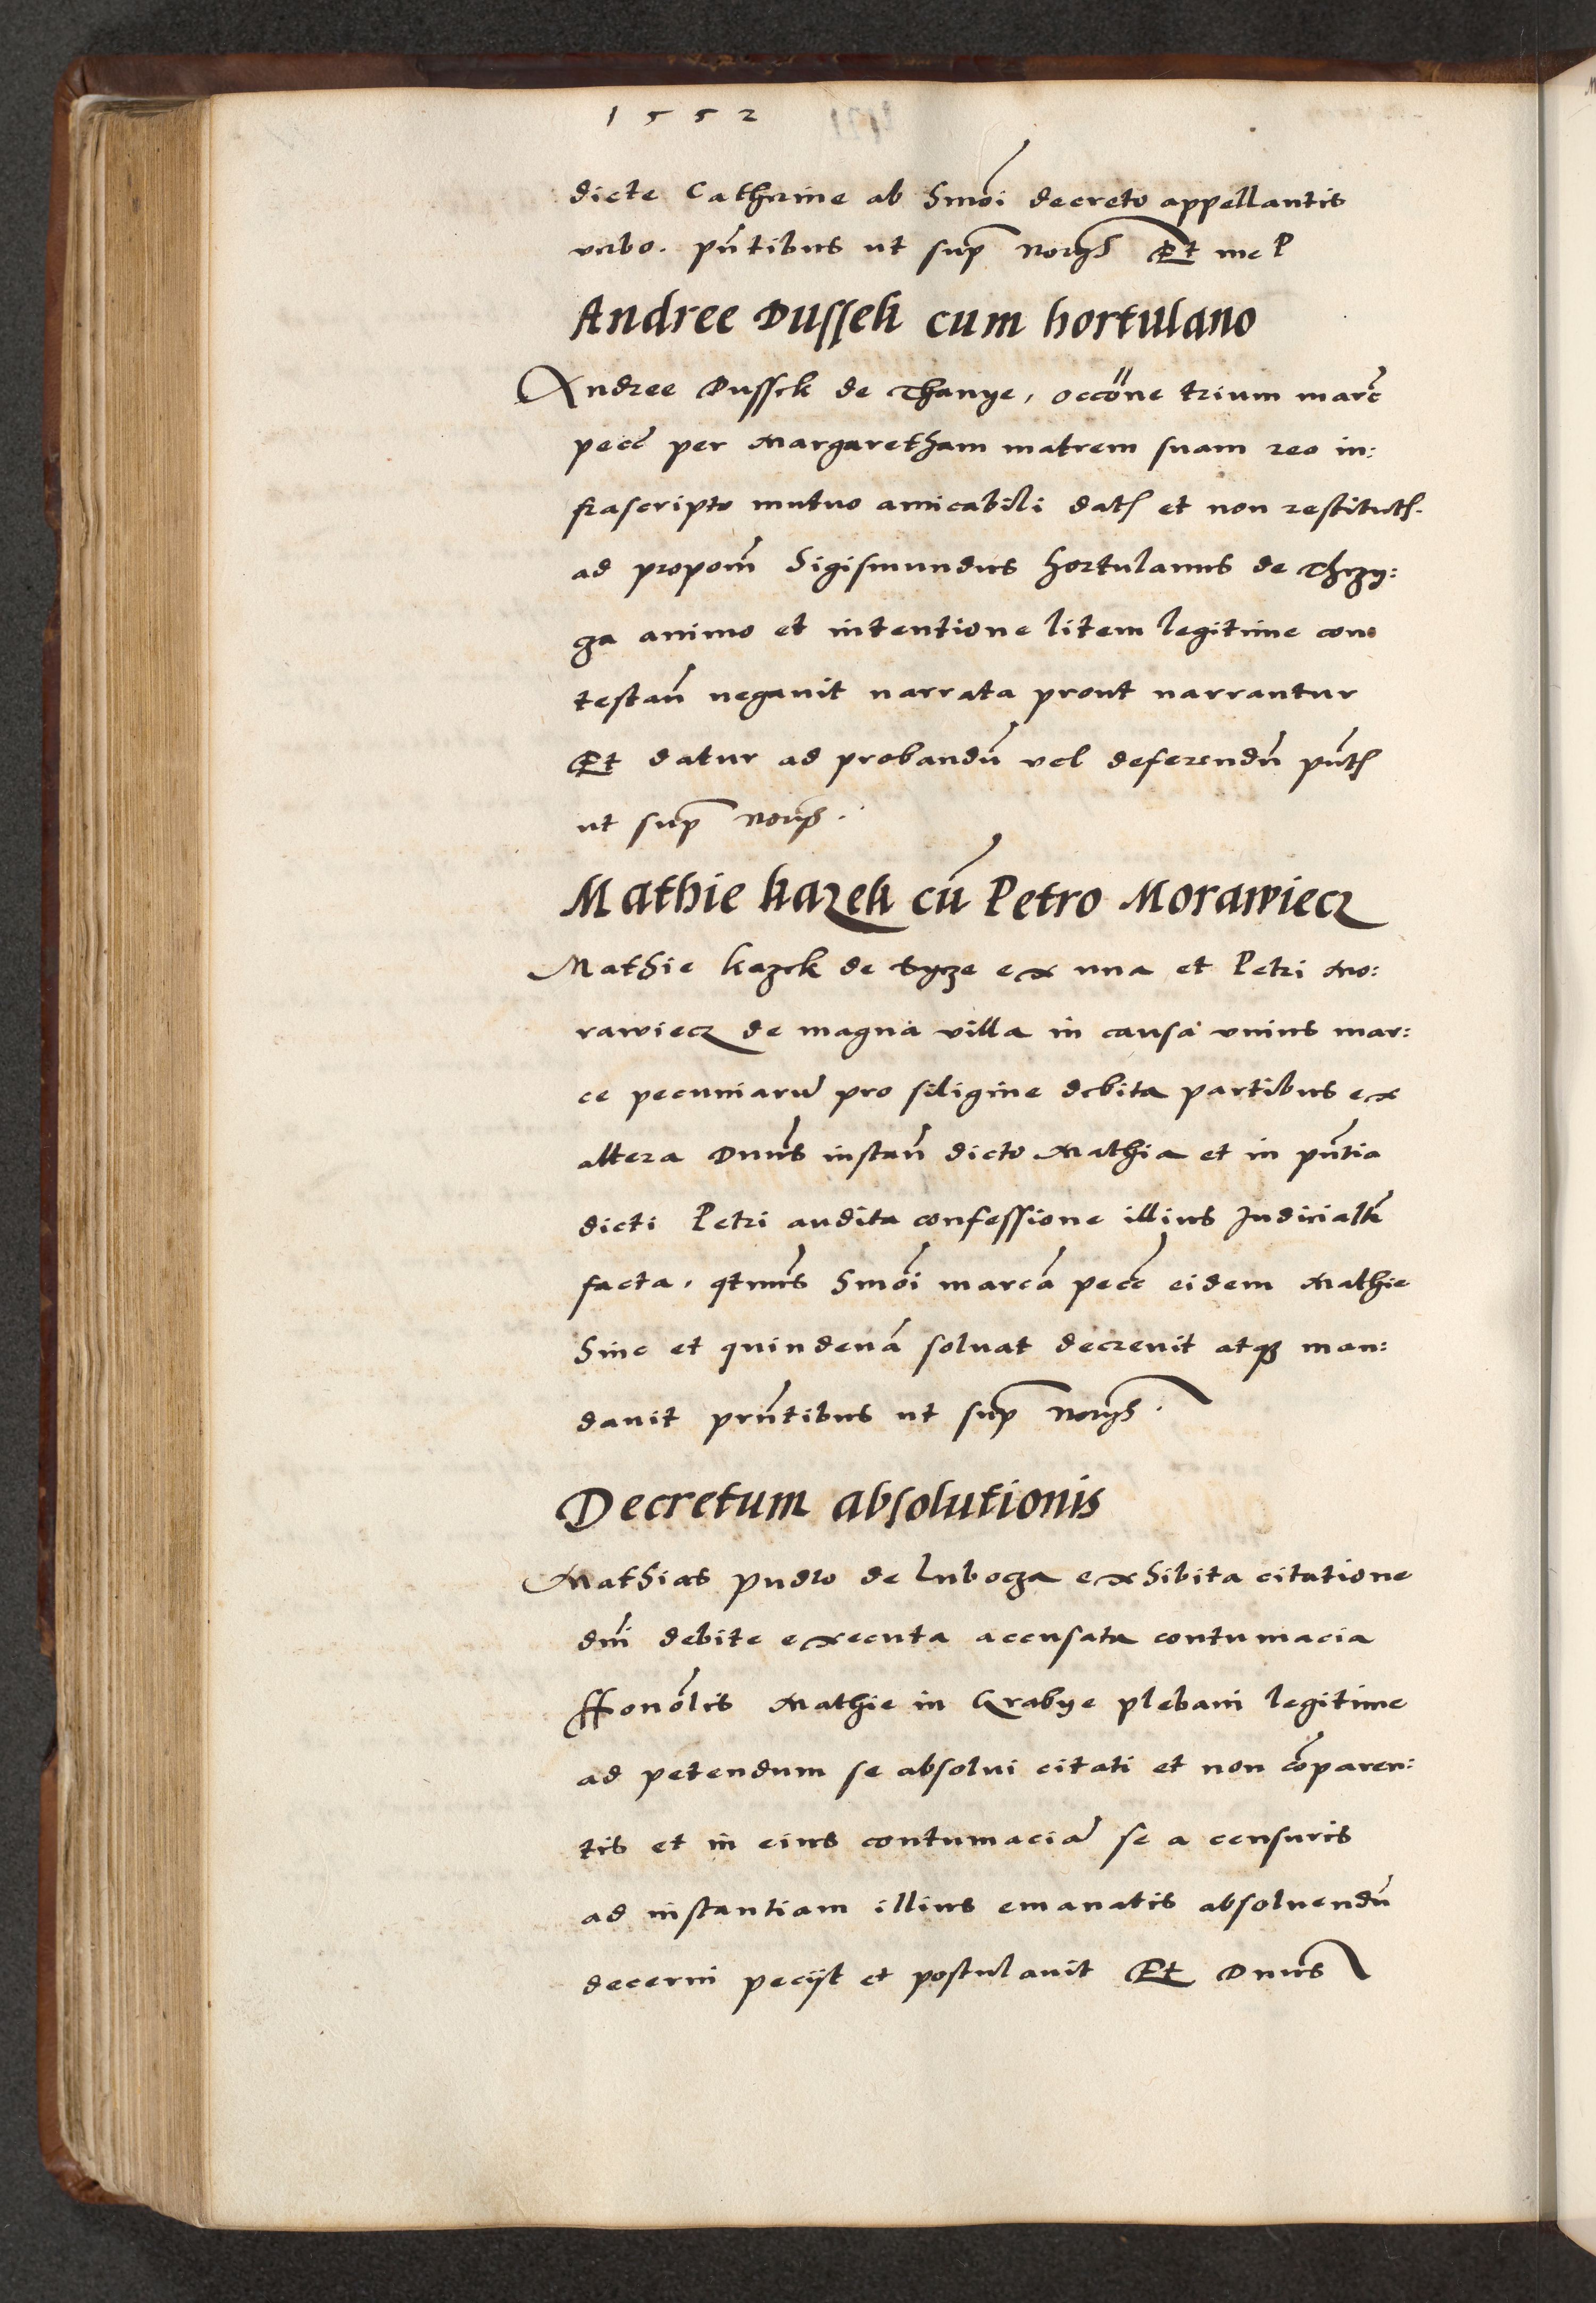 1552
dicte Catherine ab hmõi decreto appellantis
verbo. pñtibus ut sup Et me P
Andree Dussek cum hortulano
Andree Dussek de Thanye, occõne trium marc̃
pecc̃ per Margaretham matrem suam reo in:
frascripto mutuo amicabili dat̃ et non restitut̃.
ad propom̃ Sigismundus hortulanus de Thrzy:
ga animo et intentione litem legitime con
testan̄ negavit narrata prout narrantur
Et datur ad probandū vel deferendū pñt̃
ut sup
Mathie kazek cū Petro Morawiecz
Mathie kazek de tycze ex una et Petri Mo:
rawiecz de magna villa in causa unius mar:
ce pecuniarū pro siligine debita partibus ex
altera Dnus instan̄ dicto Mathia et in pñtia
dicti Petri audita confessione illius Judicialr̃
facta, qtnus hmõi marcā pecc̃ eidem Mathie
hinc et quindenā solvat decrevit atq3 man:
davit prñtibus ut sup
Decretum absolutionis
Mathias pudlo de lubocza exhibita citatione
dni debite executa accusata contumacia
honõlis Mathie in Grabye plebani legitime
ad petendum se absolvi citati et non cõparen:
tis et in eius contumaciā se a censuris
ad instantiam illius emanatis absolvendū
decerni pecijt et postulavit Et Dnus